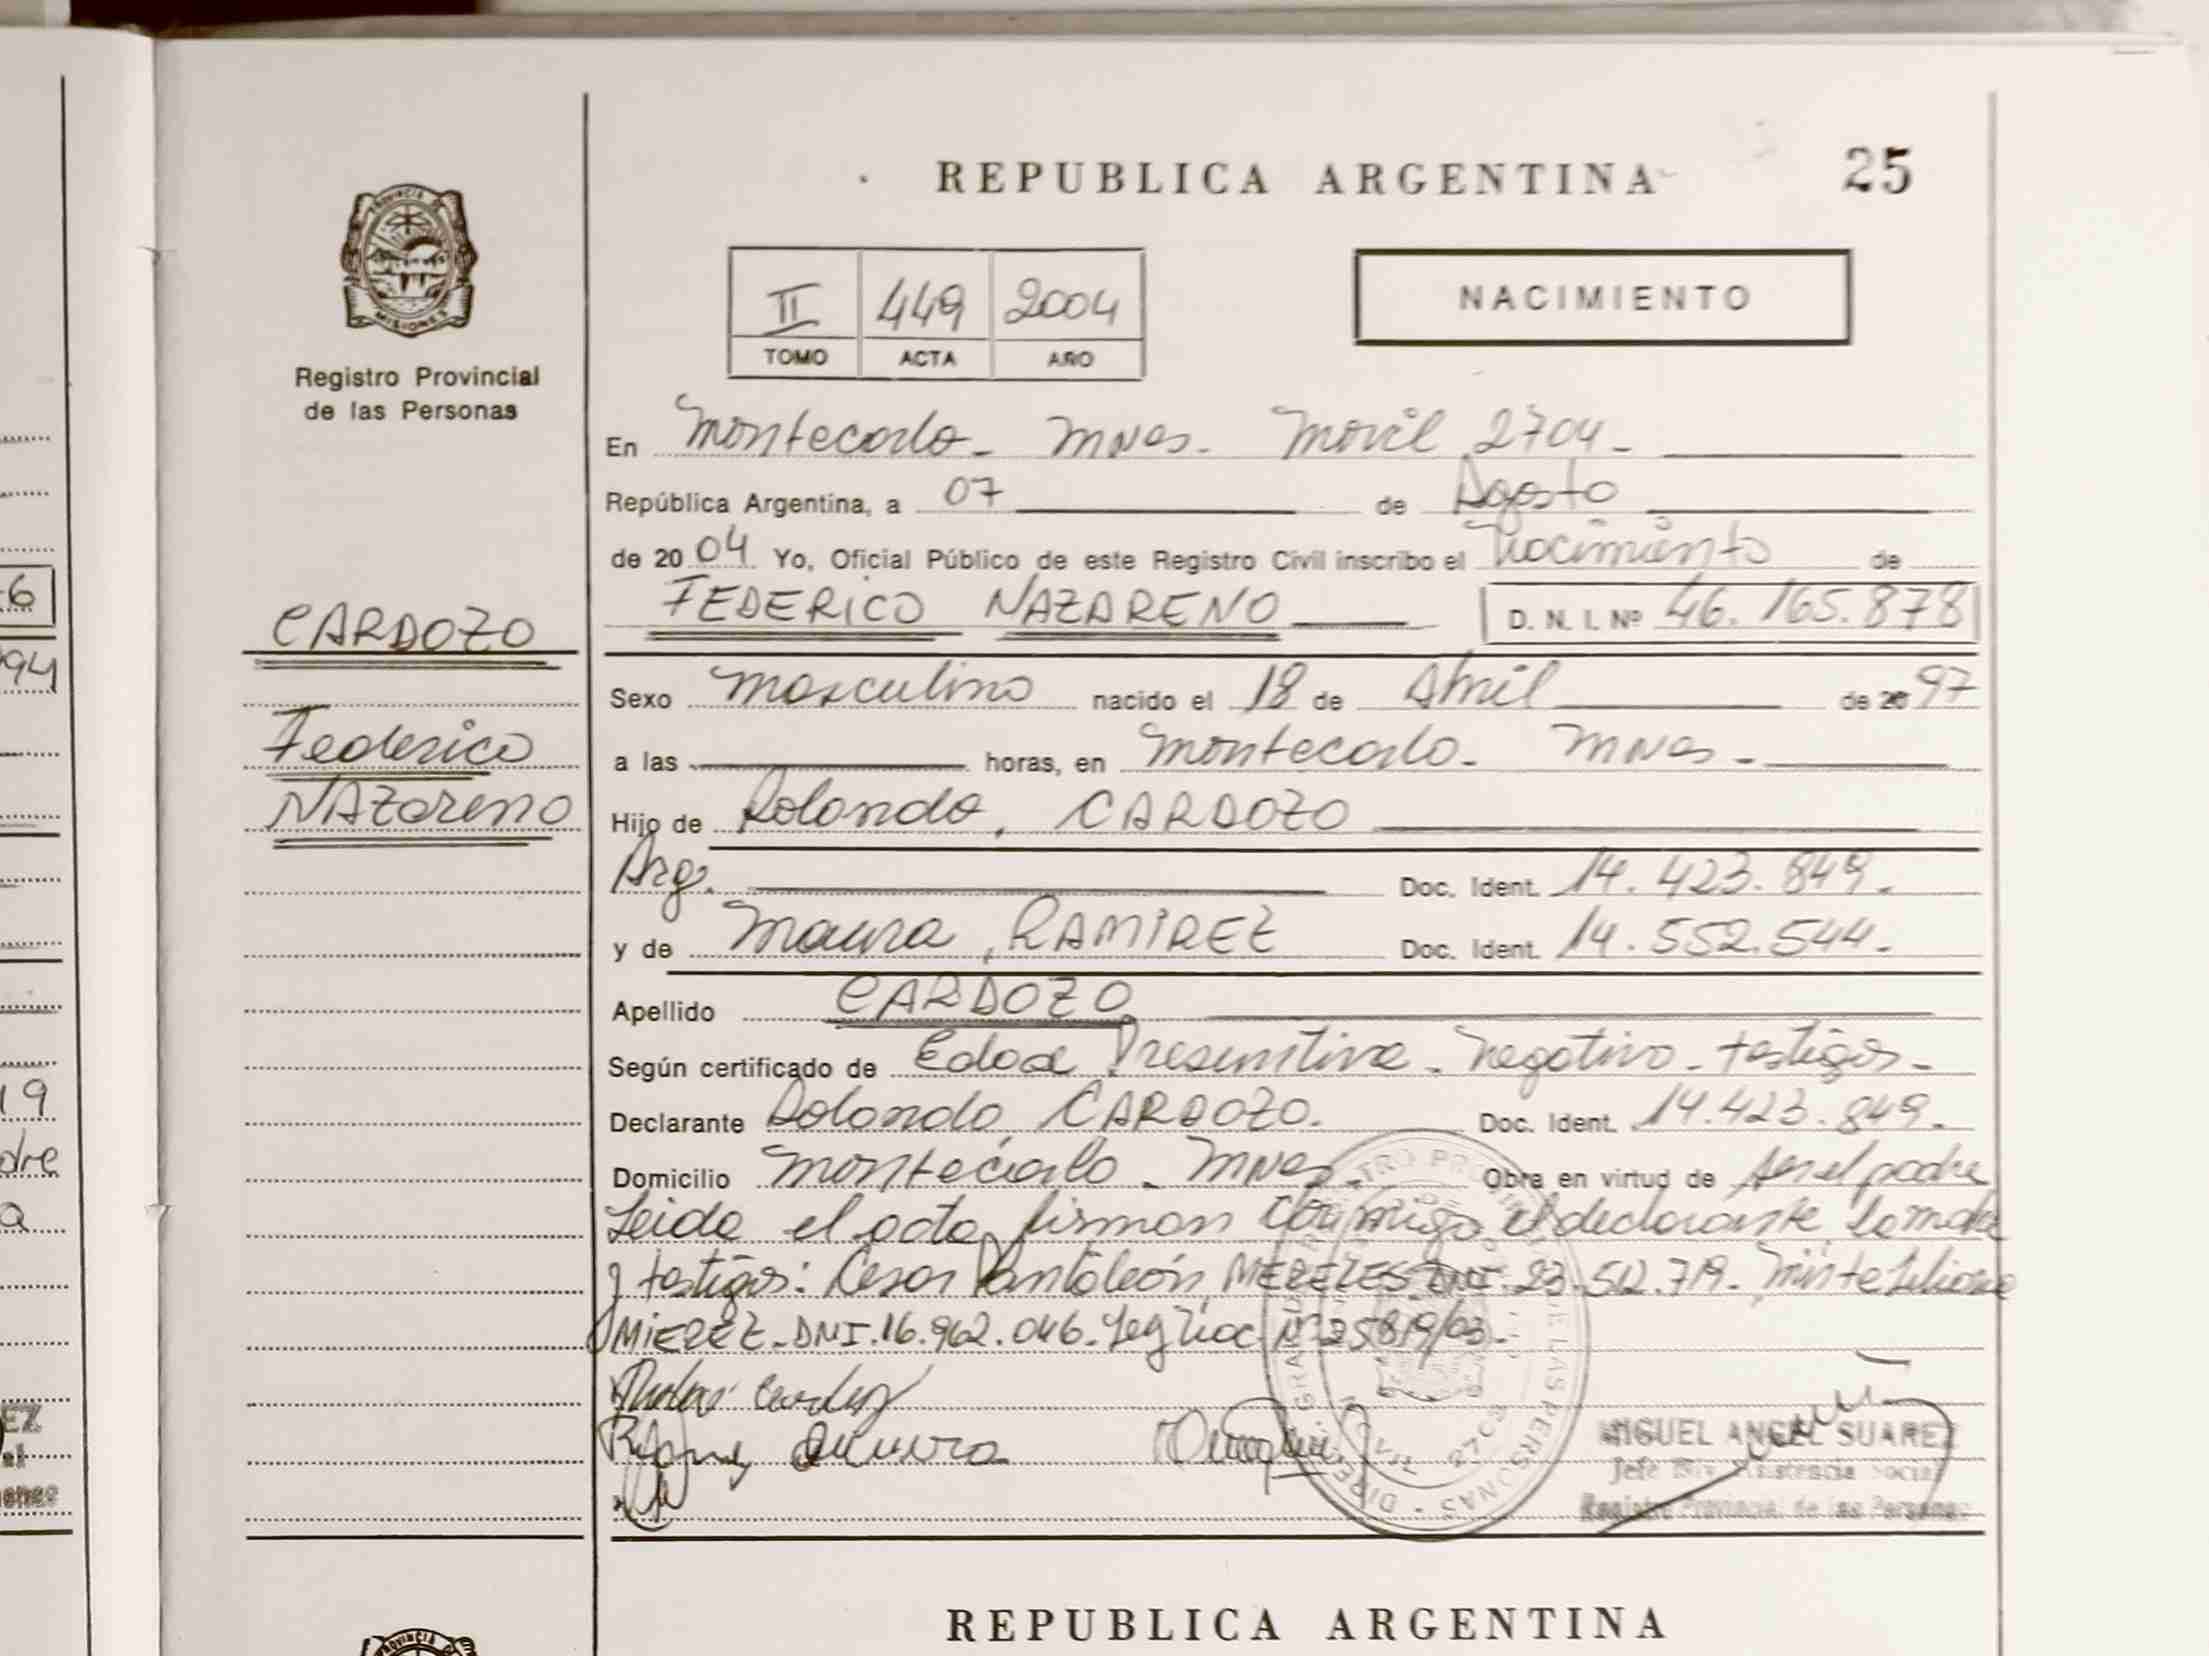 REPUBLICA ARGENTINA
25
II 449 2004
TOMO ACTA AÑO
NACIMIENTO
PROVINCIA DE
MISIONES
Registro Provincial
de las Personas
En Montecarlo - Mnes. Movil 2704 -
República Argentina, a 07 de Agosto
de 2004 Yo, Oficial Público de este Registro Civil inscribo el Nacimiento de
FEDERICO NAZARENO D. N. I. Nº 46.165.878
CARDOZO
Federico
NAZareno
Sexo masculino nacido el 18 de Abril de 97
a las horas, en Montecarlo - Mnes -
Hijo de Rolando, CARDOZO
Arg. Doc. Ident. 14.423.849.
y de Maura, RAMIREZ Doc. Ident. 14.552.544.
Apellido CARDOZO
Según certificado de Edad Presuntiva - Negativo - testigos -
Declarante Rolando, CARDOZO. Doc. Ident. 14.423.849.
Domicilio Montecarlo - Mnes - Obra en virtud de ser el padre
Leida el acta, firman conmigo el declarante, la madre
y testigos: Cesar Pantaleón, MERELES DNI. 23.512.719 - Liliana
MIEREZ - DNI. 16.962.046. Nº 25819/03 -
MIGUEL ANGEL SUAREZ
Jefe Div. Asistencia Social
Registro Provincial de las Personas
6
94
19
dre
a
EZ
REPUBLICA ARGENTINA
PROVINCIA DE